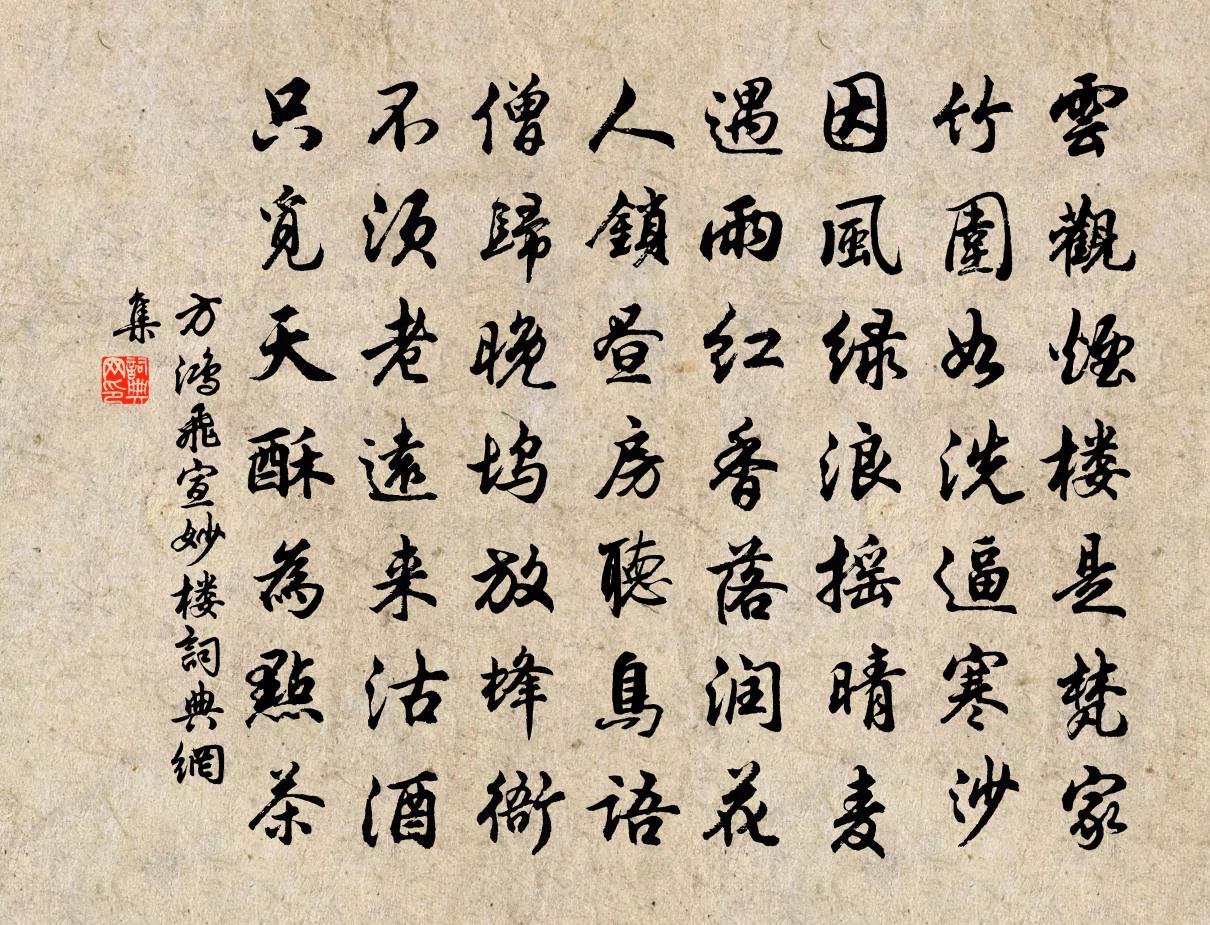 雲觀煙楼是梵家
竹園如洗逼寒沙
因風緑浪摇晴麦
遇雨红香落润花
人鎖昼房聽鳥語
僧歸晚坞放蜂衙
不須老遠来沽酒
只覓天酥為點茶
方鴻飛宣妙楼詞典網
集
詞典
网印